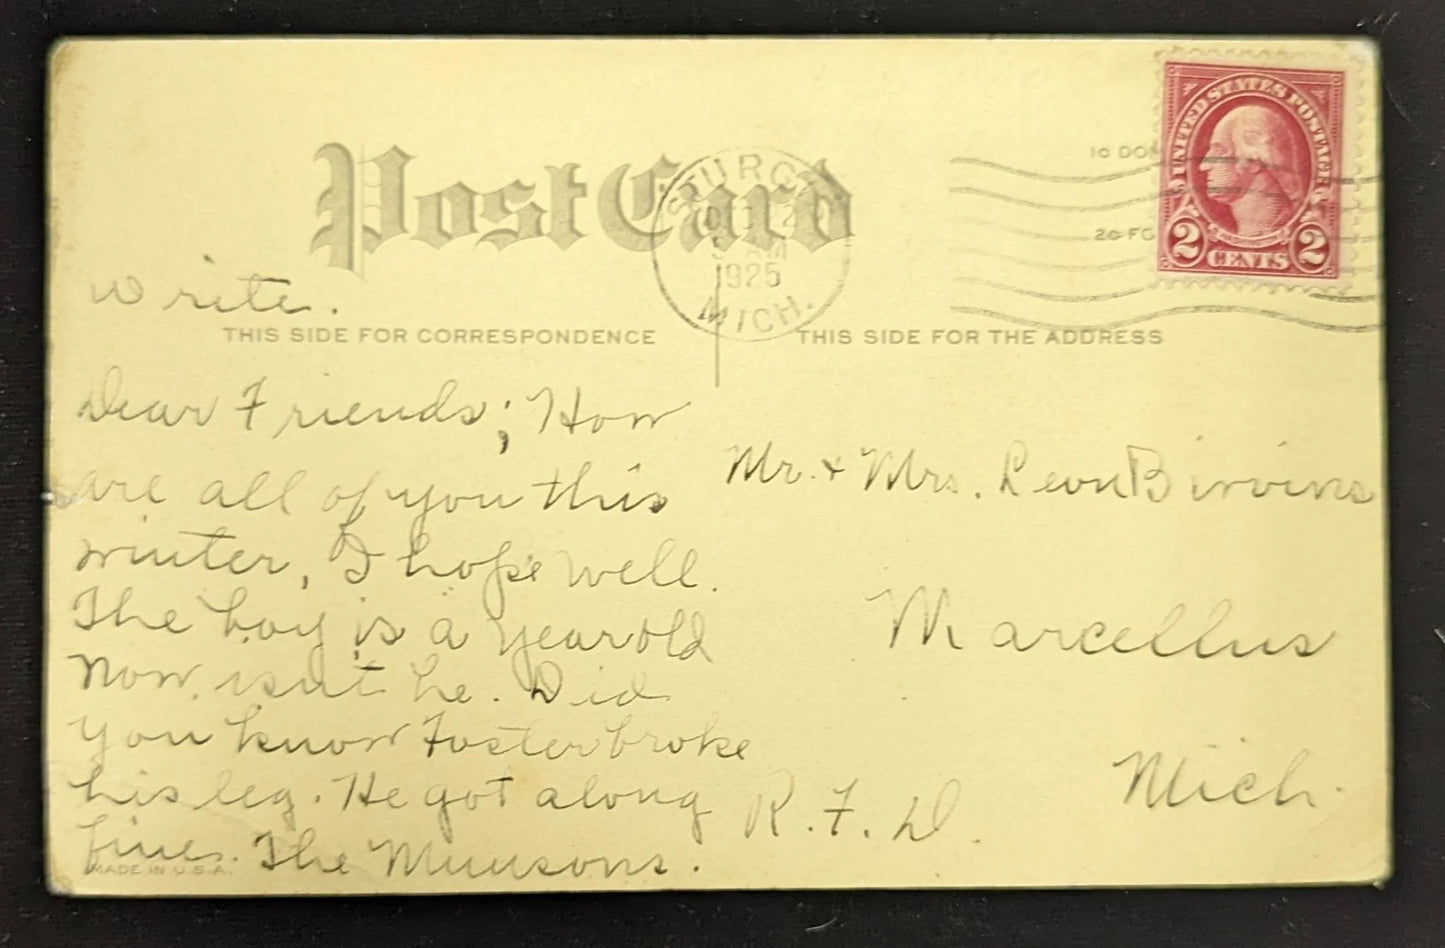 Post Card
STURGIS
1925
MICH.
1c DO
2c FO
UNITED STATES POSTAGE
2 CENTS 2
write.
THIS SIDE FOR CORRESPONDENCE
THIS SIDE FOR THE ADDRESS
Dear Friends; How
are all of you this
winter, I hope well.
The boy is a year old
now, isnt he. Did
you know Foster broke
his leg. He got along
fine. The Munsons.
MADE IN U.S.A.
Mr. + Mrs. Leon
Marcellus
Mich.
R.F.D.